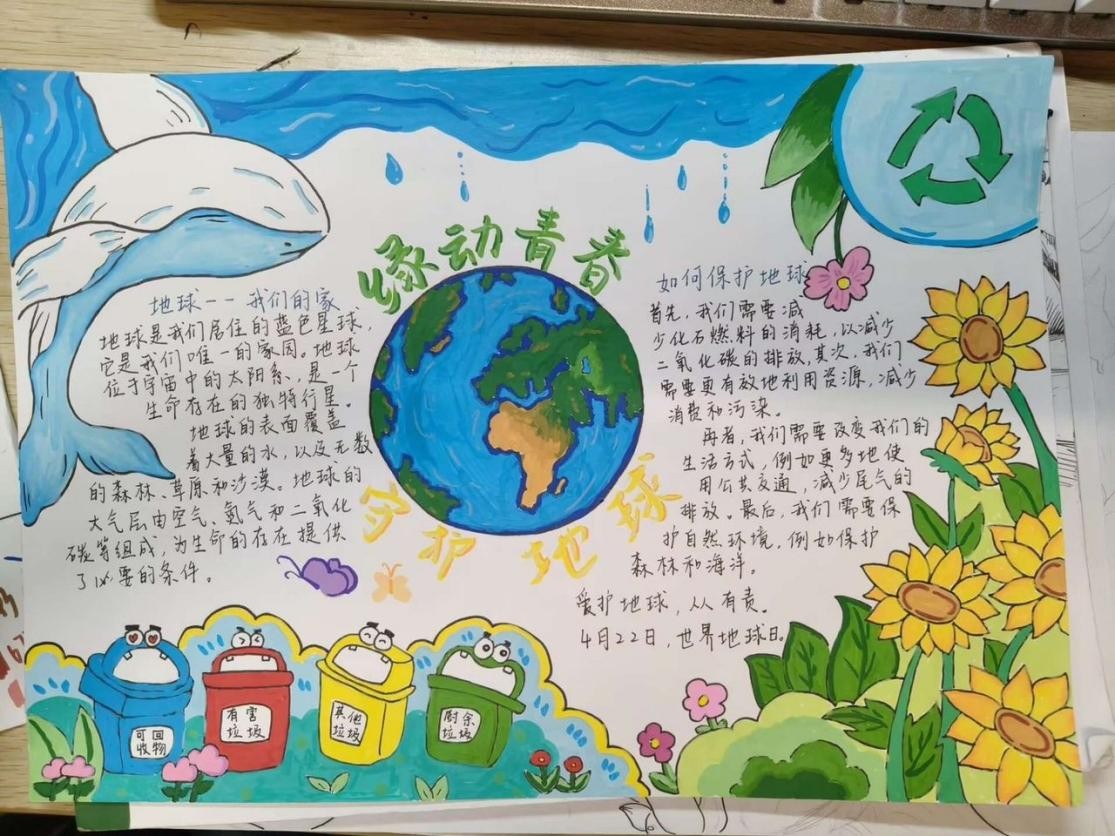 缘动青春
守护地球
地球--我们的家
地球是我们居住的蓝色星球，
它是我们唯一的家园。地球
位于宇宙中的太阳系，是一个
生命存在的独特行星。
地球的表面覆盖
着大量的水，以及无数
的森林、草原和沙漠。地球的
大气层由空气、氨气和二氧化
碳等组成，为生命的存在提供
了必要的条件。
如何保护地球
首先，我们需要减
少化石燃料的消耗，以减少
二氧化碳的排放，其次，我们
需要更有效地利用资源，减少
消费和污染。
再者，我们需要改变我们的
生活方式，例如更多地使
用公共交通，减少尾气的
排放。最后，我们需要保
护自然环境，例如保护
森林和海洋。
爱护地球，从人有责。
4月22日，世界地球日。
可回
收物
有害
垃圾
其他
垃圾
厨余
垃圾